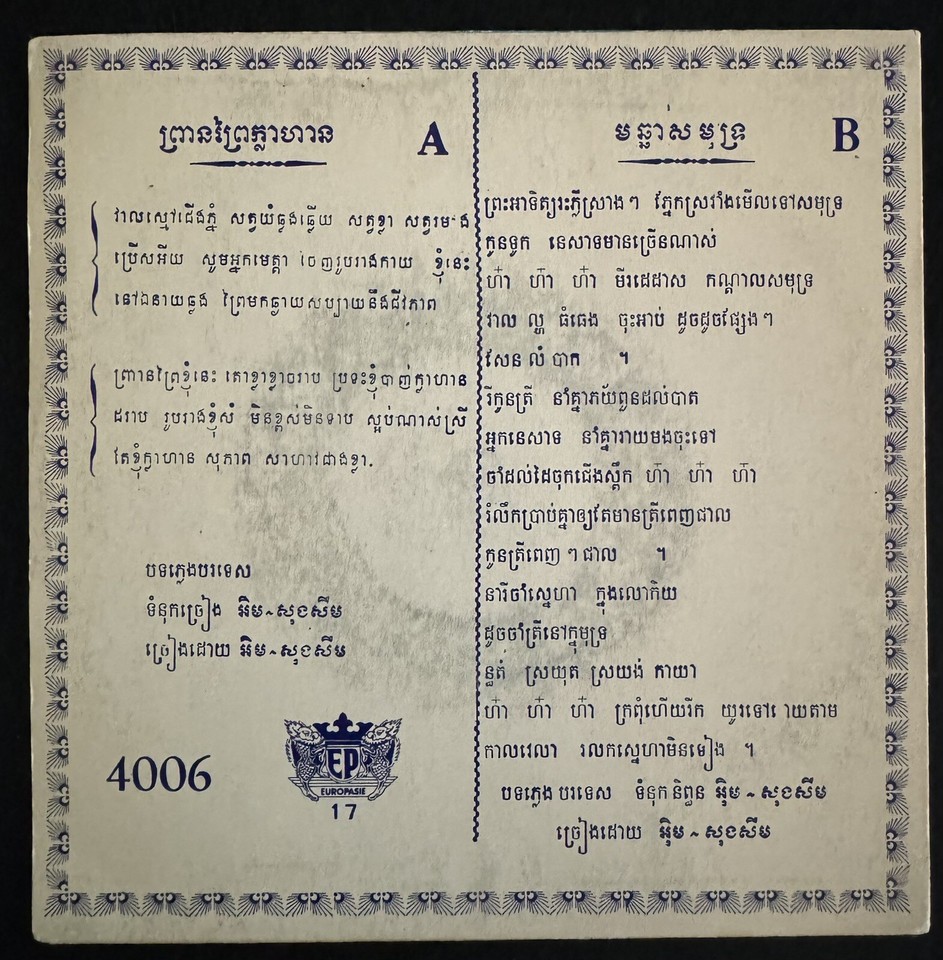 ព្រានព្រៃក្លាហាន
A
វាលស្មៅជើងភ្នំ សត្វយំធ្លងឆ្លើយ សត្វខ្លា សត្វរមាំង
ប្រើសអើយ សូមអ្នកមេត្តា ចេញរូបរាងកាយ ខ្ញុំនេះ
នៅឯនាយឆ្លង ព្រៃមកឆ្ងាយសប្បាយនឹងជីវភាព
ព្រានព្រៃខ្ញុំនេះ តោខ្លាខ្លាចរាប ប្រទះខ្ញុំបាញ់ក្លាហាន
ដរាប រូបរាងខ្ញុំសំ មិនខ្ពស់មិនទាប ស្អប់ណាស់ស្រី
តែខ្ញុំក្លាហាន សុភាព សាហាវជាងខ្លា.
បទភ្លេងបរទេស
ទំនុកច្រៀង អិម~សុងសឺម
ច្រៀងដោយ អិម~សុងសឺម
4006
EP
EUROPASIE
17
មច្ឆាសមុទ្រ
B
ព្រះអាទិត្យរះភ្លឺស្រាងៗ ភ្នែកស្រវាំងមើលទៅសមុទ្រ
កូនទូក នេសាទមានច្រើនណាស់
ហ៎ា ហ៎ា ហ៎ា មីរដេដាស កណ្តាលសមុទ្រ
វាល ល្ហ ធំធេង ចុះអាប់ ដូចដូចផ្សែងៗ
សែន លំ បាក ។
រីកូនត្រី នាំគ្នាភ័យពួនដល់បាត
អ្នកនេសាទ នាំគ្នារាយមងចុះទៅ
ចាំដល់ដៃចុកជើងស្ពឹក ហ៎ា ហ៎ា ហ៎ា
រំលឹកប្រាប់គ្នាឲ្យតែមានត្រីពេញជាល
កូនត្រីពេញ ៗ ជាល ។
នារីចាំស្នេហា ក្នុងលោកិយ
ដូចចាំត្រីនៅក្នុមុទ្រ
ន្ធត់ ស្រយុត ស្រយង់ កាយា
ហ៎ា ហ៎ា ហ៎ា ក្រពុំហើយរីក យូរទៅរោយតាម
កាលវេលា រលកស្នេហាមិនទៀង ។
បទភ្លេង បរទេស ទំនុក និពន្ធ អ៊ិម ~ សុងសឺម
ច្រៀងដោយ អ៊ិម ~ សុងសឺម